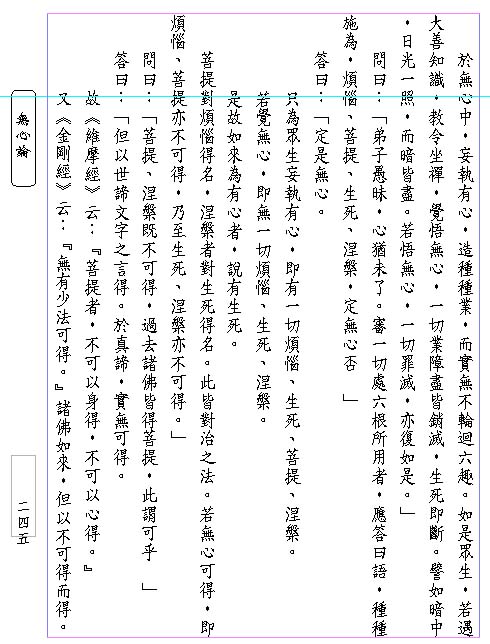 於無心中，妄執有心，造種種業，而實無不輪迴六趣。如是眾生，若遇
大善知識，教令坐禪，覺悟無心，一切業障盡皆銷滅，生死即斷。譬如暗中
，日光一照，而暗皆盡。若悟無心，一切罪滅，亦復如是。」
問曰：「弟子愚昧，心猶未了。審一切處六根所用者，應答曰語，種種
施為，煩惱、菩提、生死、涅槃，定無心否　」
答曰：「定是無心。
只為眾生妄執有心，即有一切煩惱、生死、菩提、涅槃。
若覺無心，即無一切煩惱、生死、涅槃。
是故如來為有心者，說有生死。
菩提對煩惱得名，涅槃者對生死得名。此皆對治之法。若無心可得，即
煩惱、菩提亦不可得，乃至生死、涅槃亦不可得。」
問曰：「菩提、涅槃既不可得，過去諸佛皆得菩提，此謂可乎　」
答曰：「但以世諦文字之言得。於真諦，實無可得。
故《維摩經》云：『菩提者，不可以身得，不可以心得。』
又《金剛經》云：『無有少法可得。』諸佛如來，但以不可得而得。
無心論
二四五